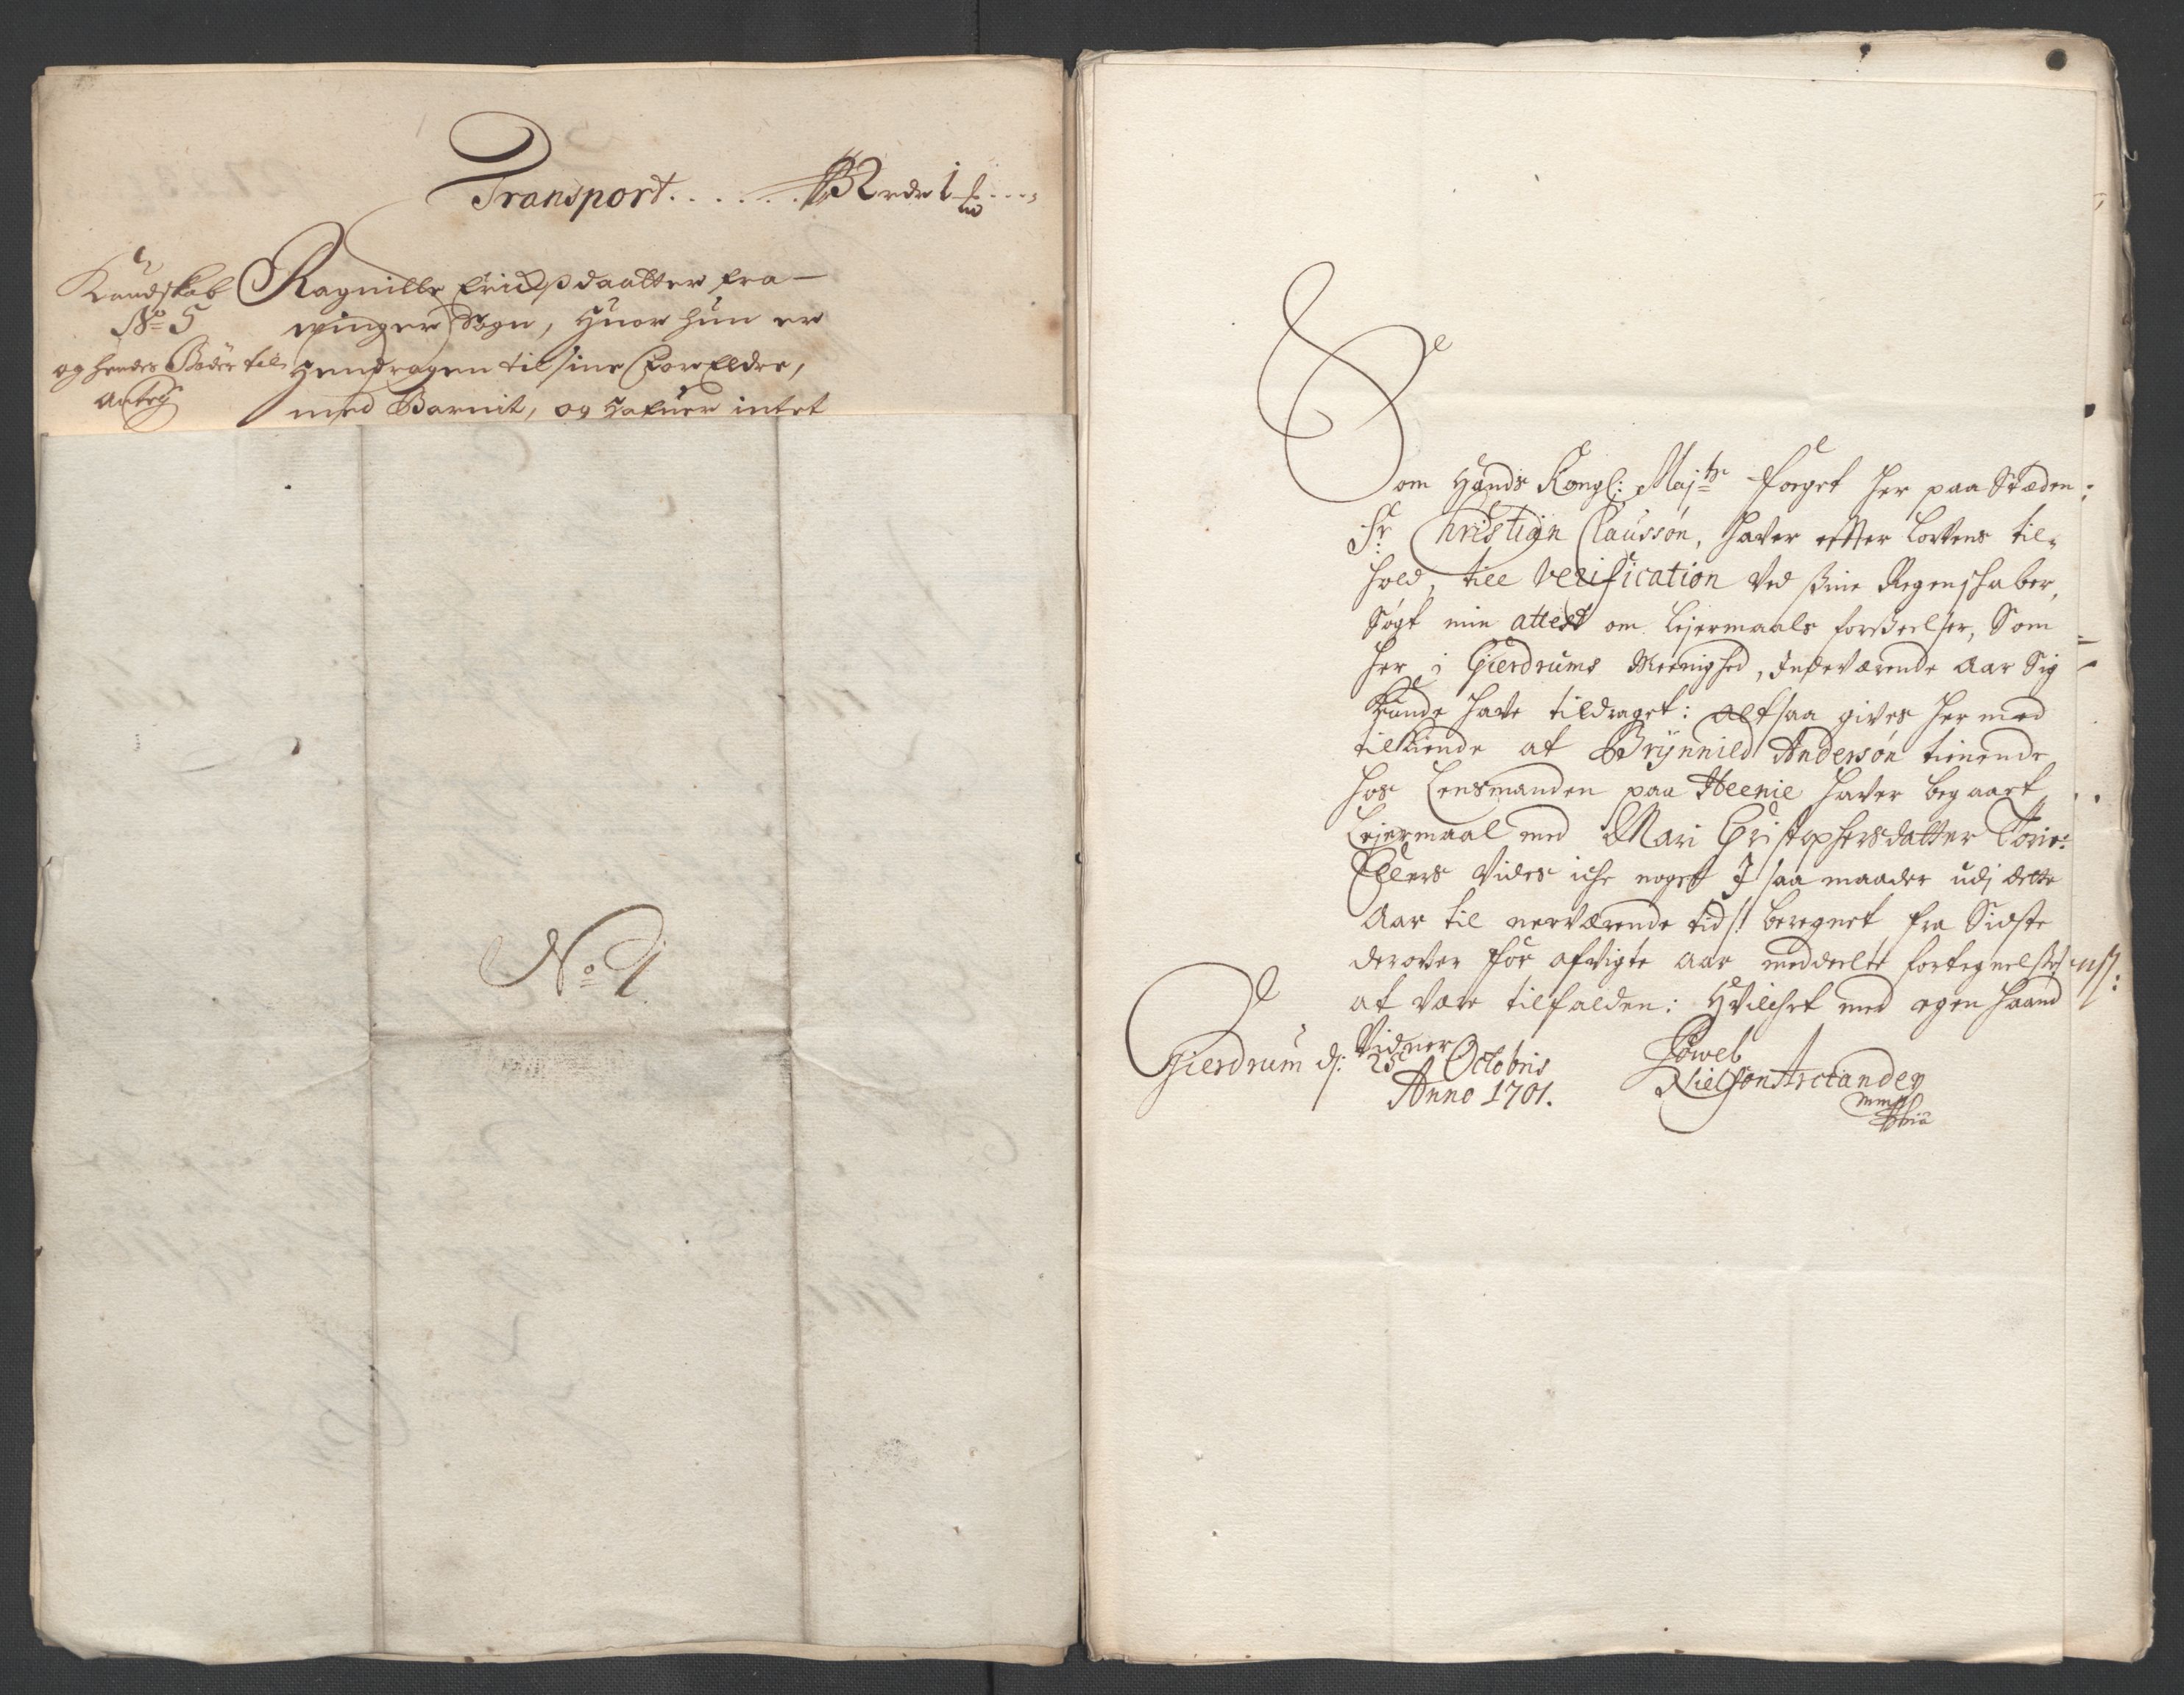 Transport . . . . . . 32 rdr 1
Kundskab
No 5
og hendes Bøder til
Ragnille Erichsdaatter fra
winger Sogn, Huor hun er
Hendragen til sine Forældre,
med Barnit, og Hafuer intet
No 1.
Som Hands Kongl: Majts Foget her paa Stæden
Sr Christian Claussøn, haver efter Lovens til-
hold, till Verification ved sine Regenskaber,
Søgt min attest om Lejermaals forseelser, Som
her i Gierdrums Meenighed, Indeværende Aar Sig
Kunde have tildraget: altsaa gives her med
tilkiende at Brÿnnild Andersøn tienende
hos Lensmanden paa Heenie haver begaaet
Lejermaal med Mari Cristophersdatter
Ellers vides iche noget J saa maader udj dette
Aar til nerværende tid beregnet fra Sidste
derover for afvigte Aar meddeelte fortegnelse
at være tilfalden: Hvilchet med egen haand
Vidner
Gierdrum d: 25 Octobris
Anno 1701.
Powel
Nielsøn Arctander
mmp